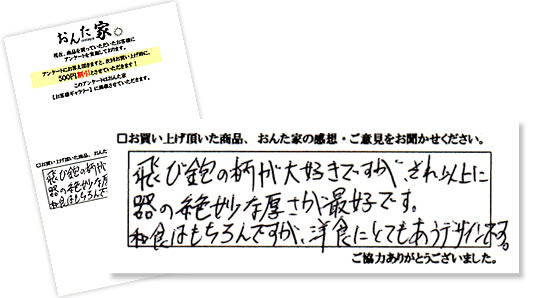 おんた家
現在、商品を買っていただいたお客様に
アンケートを実施しております。
アンケートにお答え頂きますと、次回お買い上げ時に、
500円割引とさせていただきます！
このアンケートはおんた家
【お客様ギャラリー】に掲載させていただきます。
□お買い上げ頂いた商品、おんた
飛び鉋の柄が
器の絶妙な厚
和食はもちろんで
□お買い上げ頂いた商品、おんた家の感想・ご意見をお聞かせください。
飛び鉋の柄が大好きですが、それ以上に
器の絶妙な厚さが最好です。
和食はもちろんですが、洋食にとてもあうデザインです。
ご協力ありがとうございました。